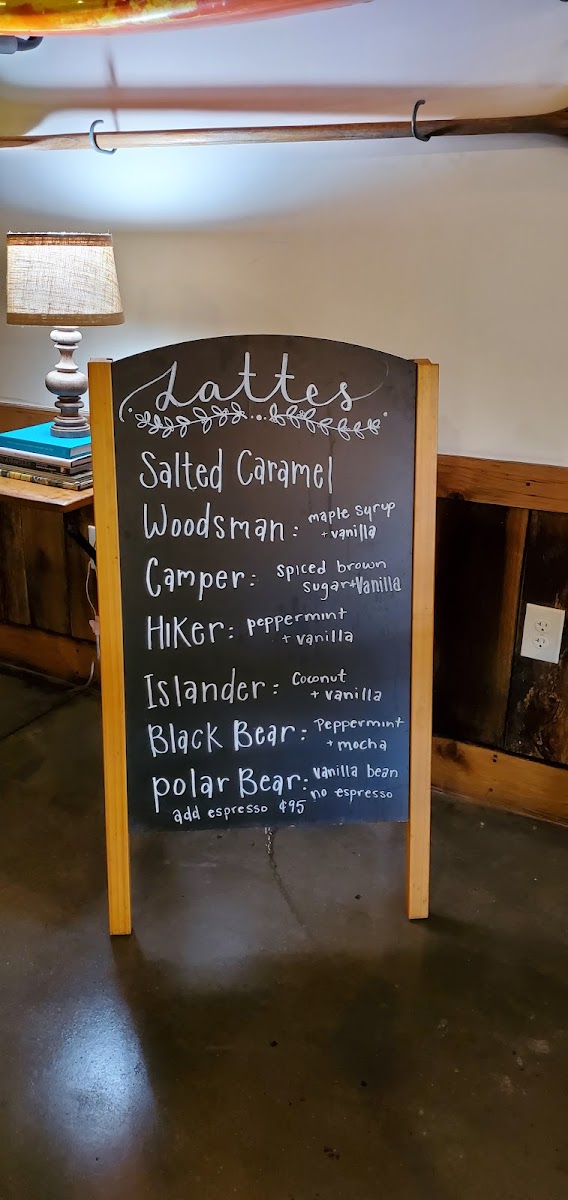 Lattes
Salted Caramel
Woodsman: maple syrup
+ vanilla
Camper: spiced brown
sugar + Vanilla
Hiker: peppermint
+ vanilla
Islander: Coconut
+ vanilla
Black Bear: Peppermint
+ mocha
polar Bear: vanilla bean
no espresso
add espresso ¢95